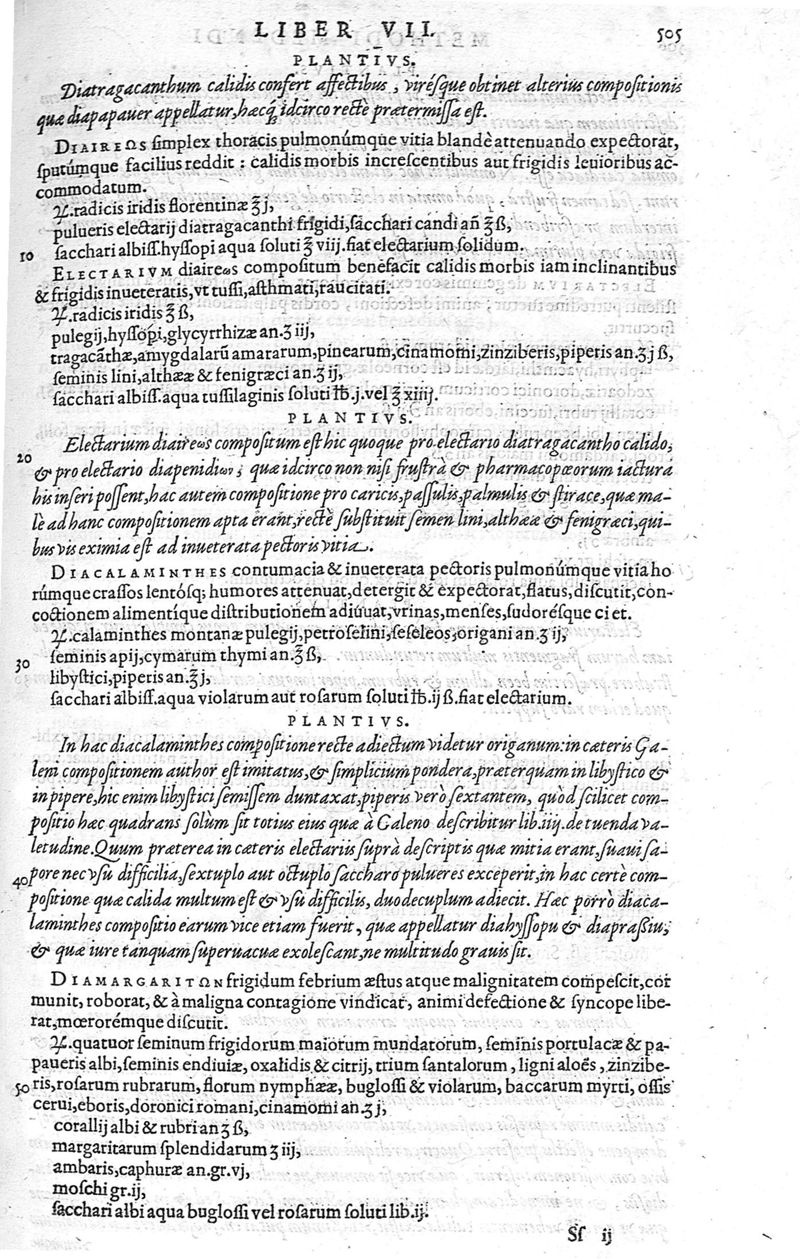 LIBER VII. 505
PLANTIVS.
Diatragacanthum calidis confert affectibus, virésque obtinet alterius compositionis
quæ diapapauer appellatur, hæcq́ idcirco rectè prætermissa est.
DIAIREωS simplex thoracis pulmonúmque vitia blandè attenuando expectorat,
sputúmque facilius reddit : calidis morbis increscentibus aut frigidis leuioribus ac-
commodatum.
♃.radicis iridis florentinæ ℥ j,
pulueris electarij diatragacanthi frigidi, sacchari candi añ ℥ ß,
10 sacchari albiss. hyssopi aqua soluti ℥ viij. fiat electarium solidum.
ELECTARIVM diaireωs compositum benefacit calidis morbis iam inclinantibus
& frigidis inueteratis, vt tussi, asthmati, raucitati.
♃.radicis iridis ℥ ß,
pulegij, hyssopi, glycyrrhizæ an. ʒ iij,
tragacãthæ, amygdalarũ amararum, pinearum, cinamomi, zinziberis, piperis an. ʒ j ß,
seminis lini, althææ & fenigræci an. ʒ ij,
sacchari albiss. aqua tussilaginis soluti ℔. j. vel ℥ xiiij.
PLANTIVS.
Electarium diaireωs compositum est hic quoque pro electario diatragacantho calido,
20 & pro electario diapenidiων; quæ idcirco non nisi frustrà & pharmacopæorum iactura
his inseri possent, hac autem compositione pro caricis, passulis, palmulis & stirace, quæ ma-
lè ad hanc compositionem apta erant, rectè substituit semen lini, althææ & fenigræci, qui-
bus vis eximia est ad inueterata pectoris vitia.
DIACALAMINTHES contumacia & inueterata pectoris pulmonúmque vitia ho
rúmque crassos lentósq; humores attenuat, detergit & expectorat, flatus, discutit, con-
coctionem alimentíque distributionem adiuuat, vrinas, menses, sudorésque ciet.
♃.calaminthes montanæ pulegij, petroselini, seseleos, origani an. ʒ ij,
30 seminis apij, cymarum thymi an. ℥ ß,
libystici, piperis an. ℥ j,
sacchari albiss. aqua violarum aut rosarum soluti ℔. ij ß. fiat electarium.
PLANTIVS.
In hac diacalaminthes compositione recte adiectum videtur origanum: in cæteris Ga-
leni compositionem author est imitatus, & simplicium pondera, præterquam in libystico &
in pipere, hic enim libystici semissem duntaxat, piperis verò sextantem, quòd scilicet com-
positio hæc quadrans solùm sit totius eius quæ à Galeno describitur lib. iiij. de tuenda va-
letudine. Quum præterea in cæteris electariis suprà descriptis quæ mitia erant, suaui sa-
40 pore nec vsu difficilia, sextuplo aut octuplo saccharo pulueres exceperit, in hac certè com-
positione quæ calida multum est & vsu difficilis, duodecuplum adiecit. Hæc porrò diaca-
laminthes compositio earum vice etiam fuerit, quæ appellatur diahyssopu & diaprassiu,
& quæ iure tanquam superuacuæ exolescant, ne multitudo grauis sit.
DIAMARGARITΩN frigidum febrium æstus atque malignitatem compescit, cor
munit, roborat, & à maligna contagione vindicat, animi defectione & syncope libe-
rat, mœrorémque discutit.
♃.quatuor seminum frigidorum maiorum mundatorum, seminis portulacæ & pa-
paueris albi, seminis endiuiæ, oxalidis & citrij, trium santalorum, ligni aloës, zinzibe-
50 ris, rosarum rubrarum, florum nymphææ, buglossi & violarum, baccarum myrti, ossis
cerui, eboris, doronici romani, cinamomi an. ʒ j,
corallij albi & rubri an ʒ ß,
margaritarum splendidarum ʒ iij,
ambaris, caphuræ an. gr. vj,
moschi gr. ij,
sacchari albi aqua buglossi vel rosarum soluti lib. ij.
Sf ij